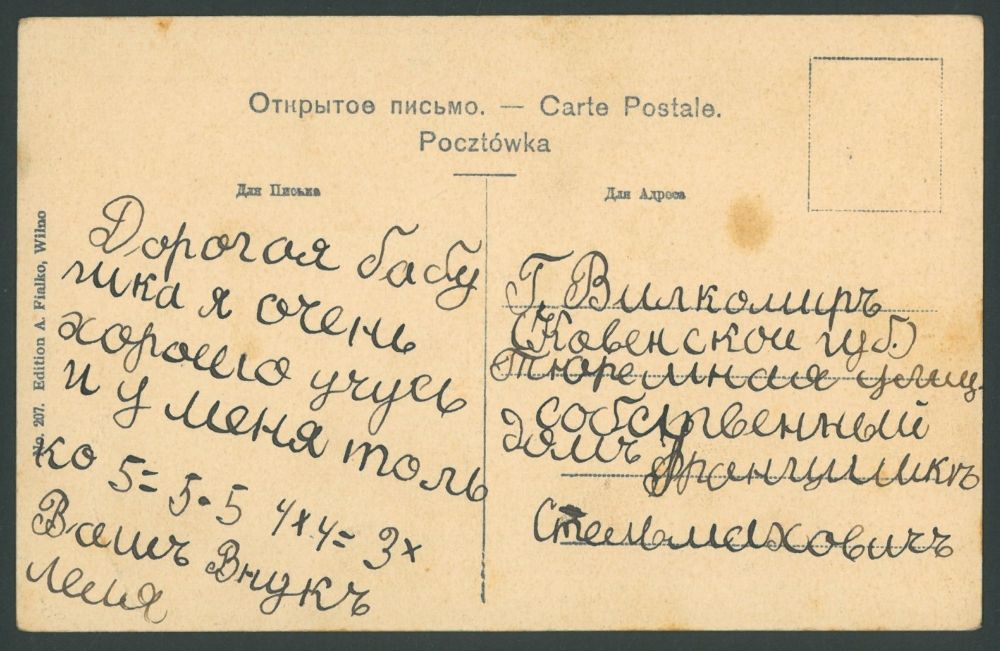 Открытое письмо. — Carte Postale.
Pocztówka
Для Письма
Для Адреса
No. 207. Edition A. Fialko, Wilno
Дорогая бабу
шка я очень
хорошо учусь
и у меня толь
ко 5= 5-5 4x4= 3x
Вашъ Внукъ
Леня
Г. Вилкомиръ
(Ковенской губ.)
Тюремная улиц.
собственный
домъ Францишкъ
Стельмаховичъ